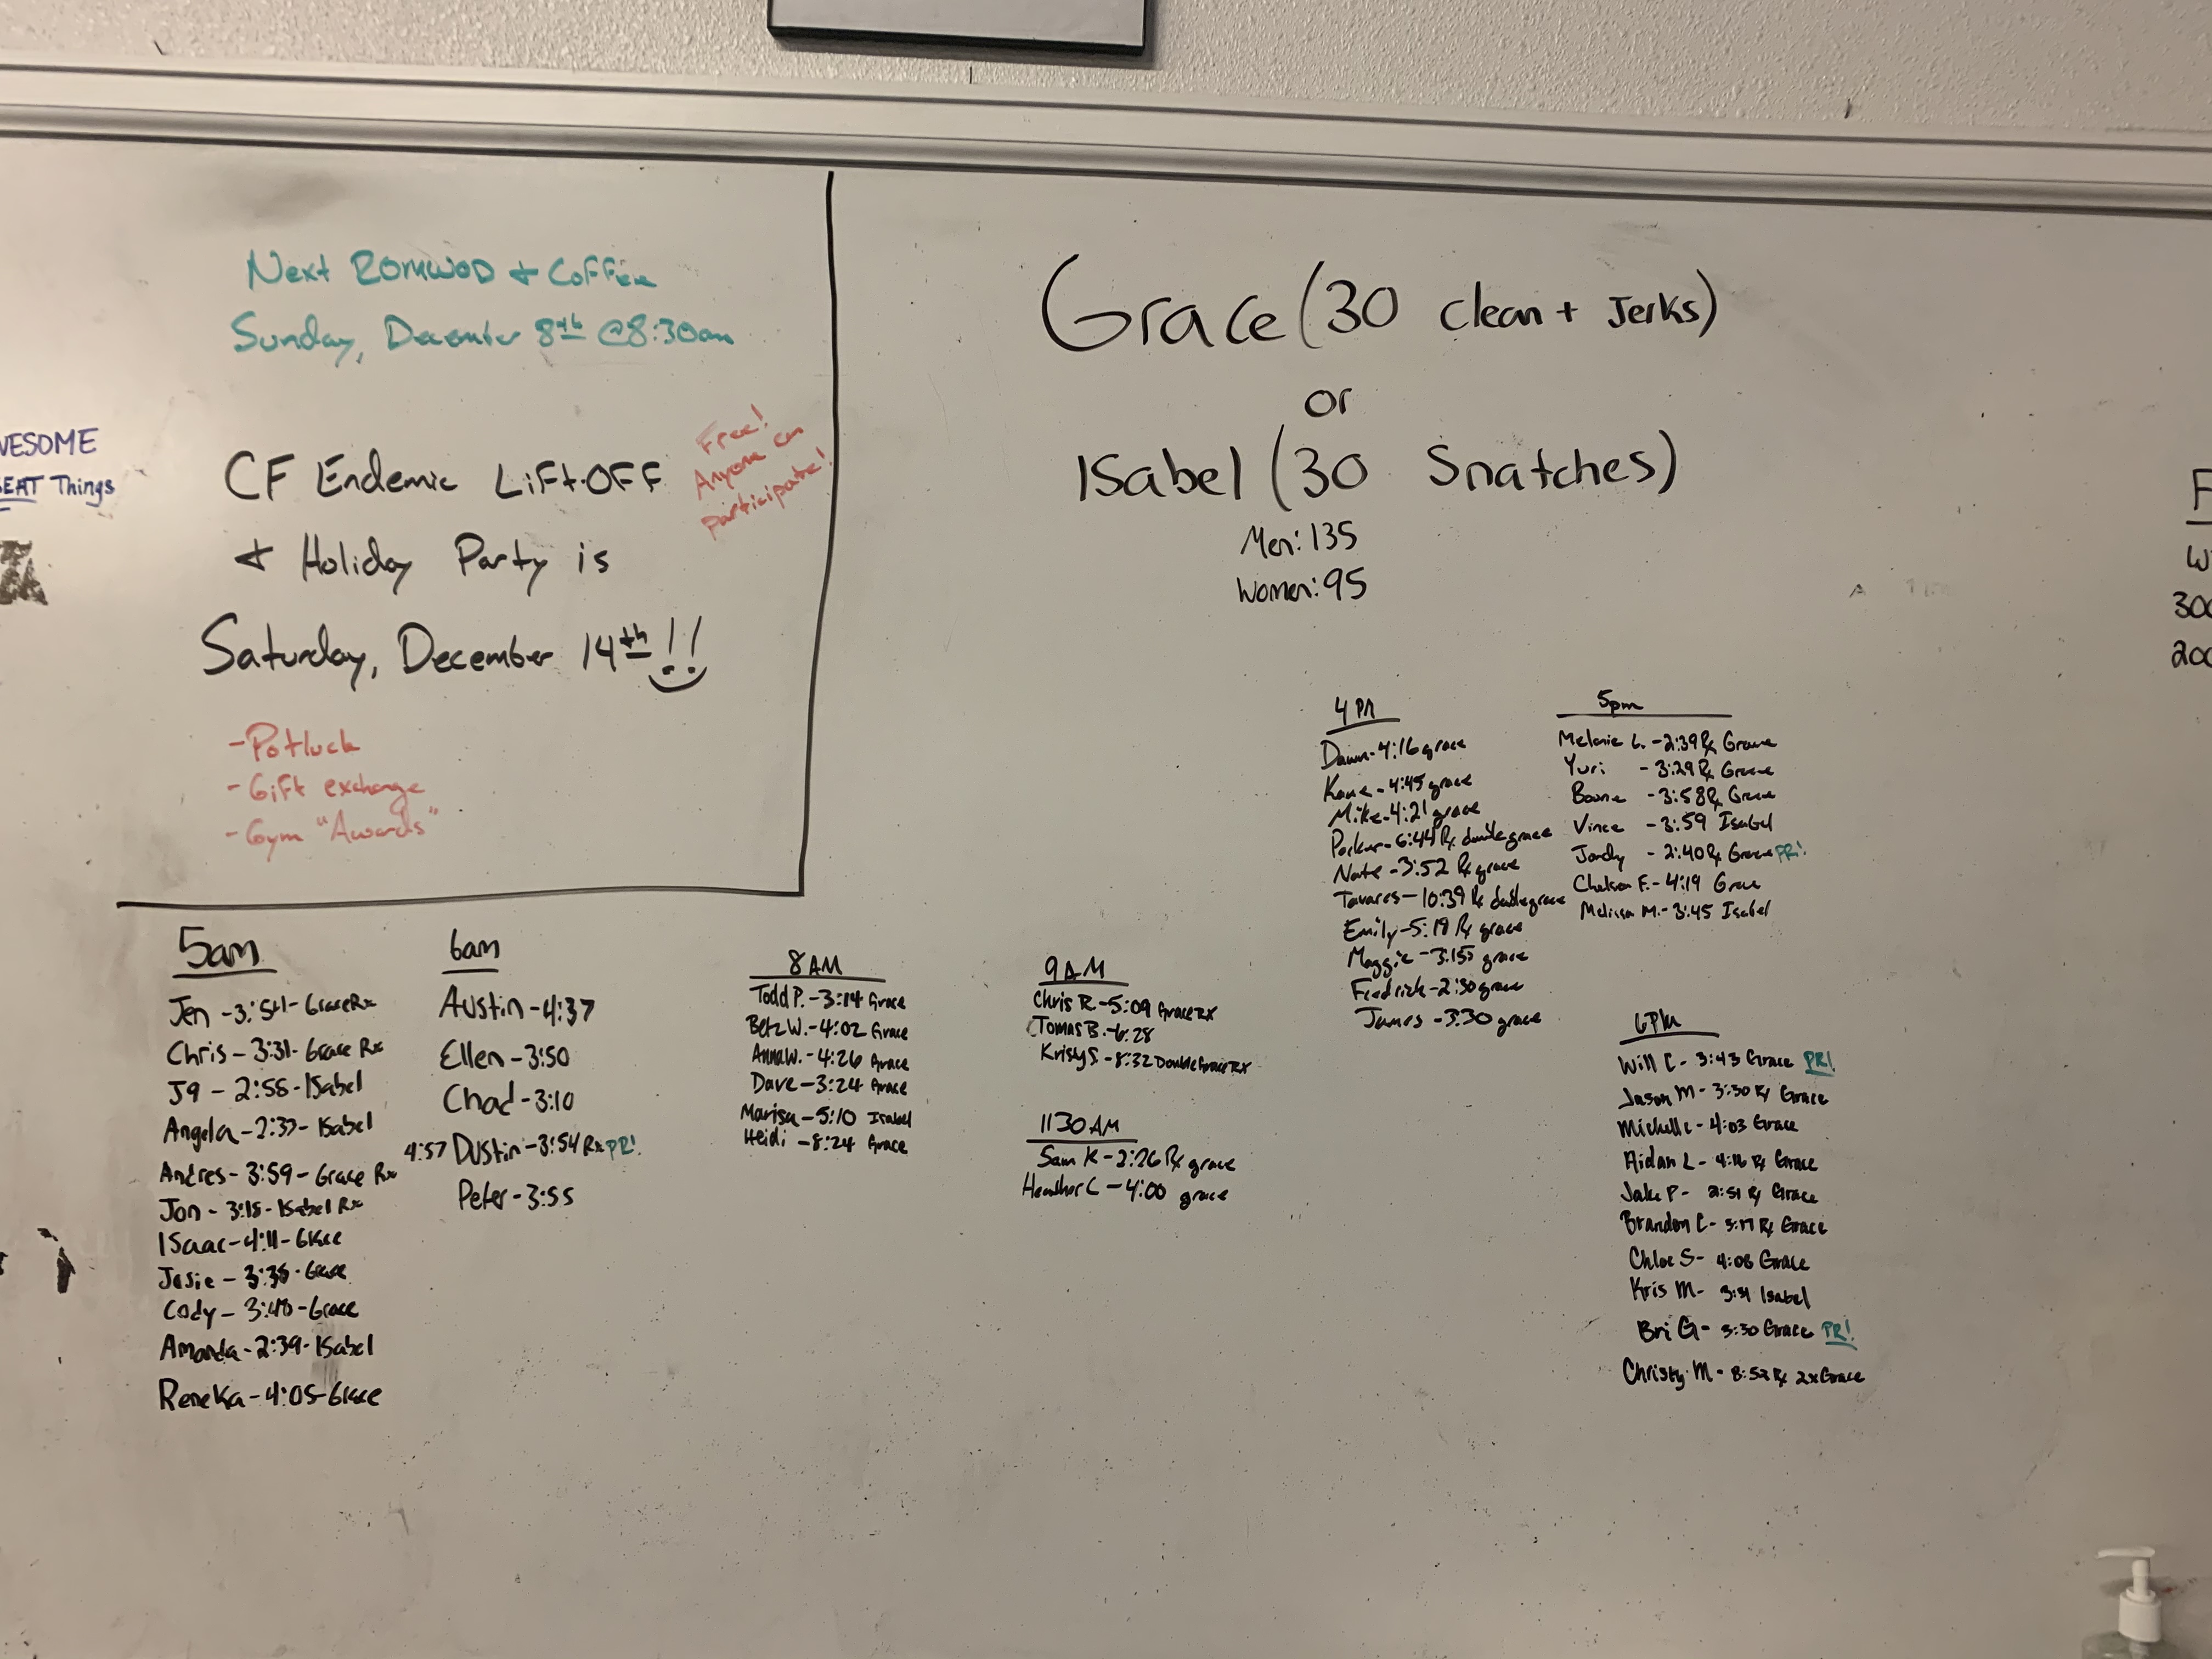 Next ROMWOD + Coffee
Sunday, December 8th @8:30am
VESOME
EAT Things
CF Endemic Lift-OFF
Free!
Anyone can
participate!
+ Holiday Party is
Saturday, December 14th!!
-Potluck
-Gift exchange
-Gym "Awards"
Grace (30 clean + Jerks)
or
ISabel (30 Snatches)
Men: 135
Women: 95
5am
Jen -3:54- Grace Rx
Chris - 3:31- Grace Rx
J9 - 2:58-ISabel
Angela -2:37- ISabel
Andres- 3:59- Grace Rx
Jon - 3:18- ISabel Rx
ISaac-4:11-Grace
Josie - 3:38- Grace
Cody - 3:48-Grace
Amanda-2:39-ISabel
Reneka-4:05-Grace
6am
Austin-4:37
Ellen-3:50
Chad-3:10
4:57 Dustin-3:54 Rx PR!
Peter-3:55
8AM
Todd P.-3:14 Grace
Betz W.-4:02 Grace
Anna W.-4:26 Grace
Dave-3:24 Grace
Marisa-5:10 Isabel
Heidi -8:24 Grace
9AM
Chris R-5:09 Grace RX
Tomas B.-6:28
Kristy S.-8:32 Double Grace RX
1130 AM
Sam K-2:26 Rx grace
Heather C-4:00 grace
4PM
Dawn-4:16 grace
4:45 grace
Mike-4:21 grace
Parker-6:44 Rx double grace
Nate-3:52 Rx grace
Tavares-10:39 Rx double grace
Emily-5:19 Rx grace
Maggie-3:15 grace
Fredrick-2:50 grace
James -3:30 grace
5pm
Melanie L. -2:39 Rx Grace
Yuri -3:29 Rx Grace
-3:58 Rx Grace
Vince -3:59 Isabel
Jordy -2:40 Rx Grace PR!
Chelsea F.-4:19 Grace
Melissa M.-3:45 Isabel
6PM
Will C- 3:43 Grace PR!
Jason M-3:30 Rx Grace
Michelle-4:03 Grace
Aidan L- 4:16 Rx Grace
Jake P- 2:51 Rx Grace
Brandon C- 3:17 Rx Grace
Chloe S- 4:08 Grace
Kris M- 3:31 Isabel
Bri G- 3:30 Grace PR!
Christy M- 8:52 Rx 2x Grace
F
W
300
200